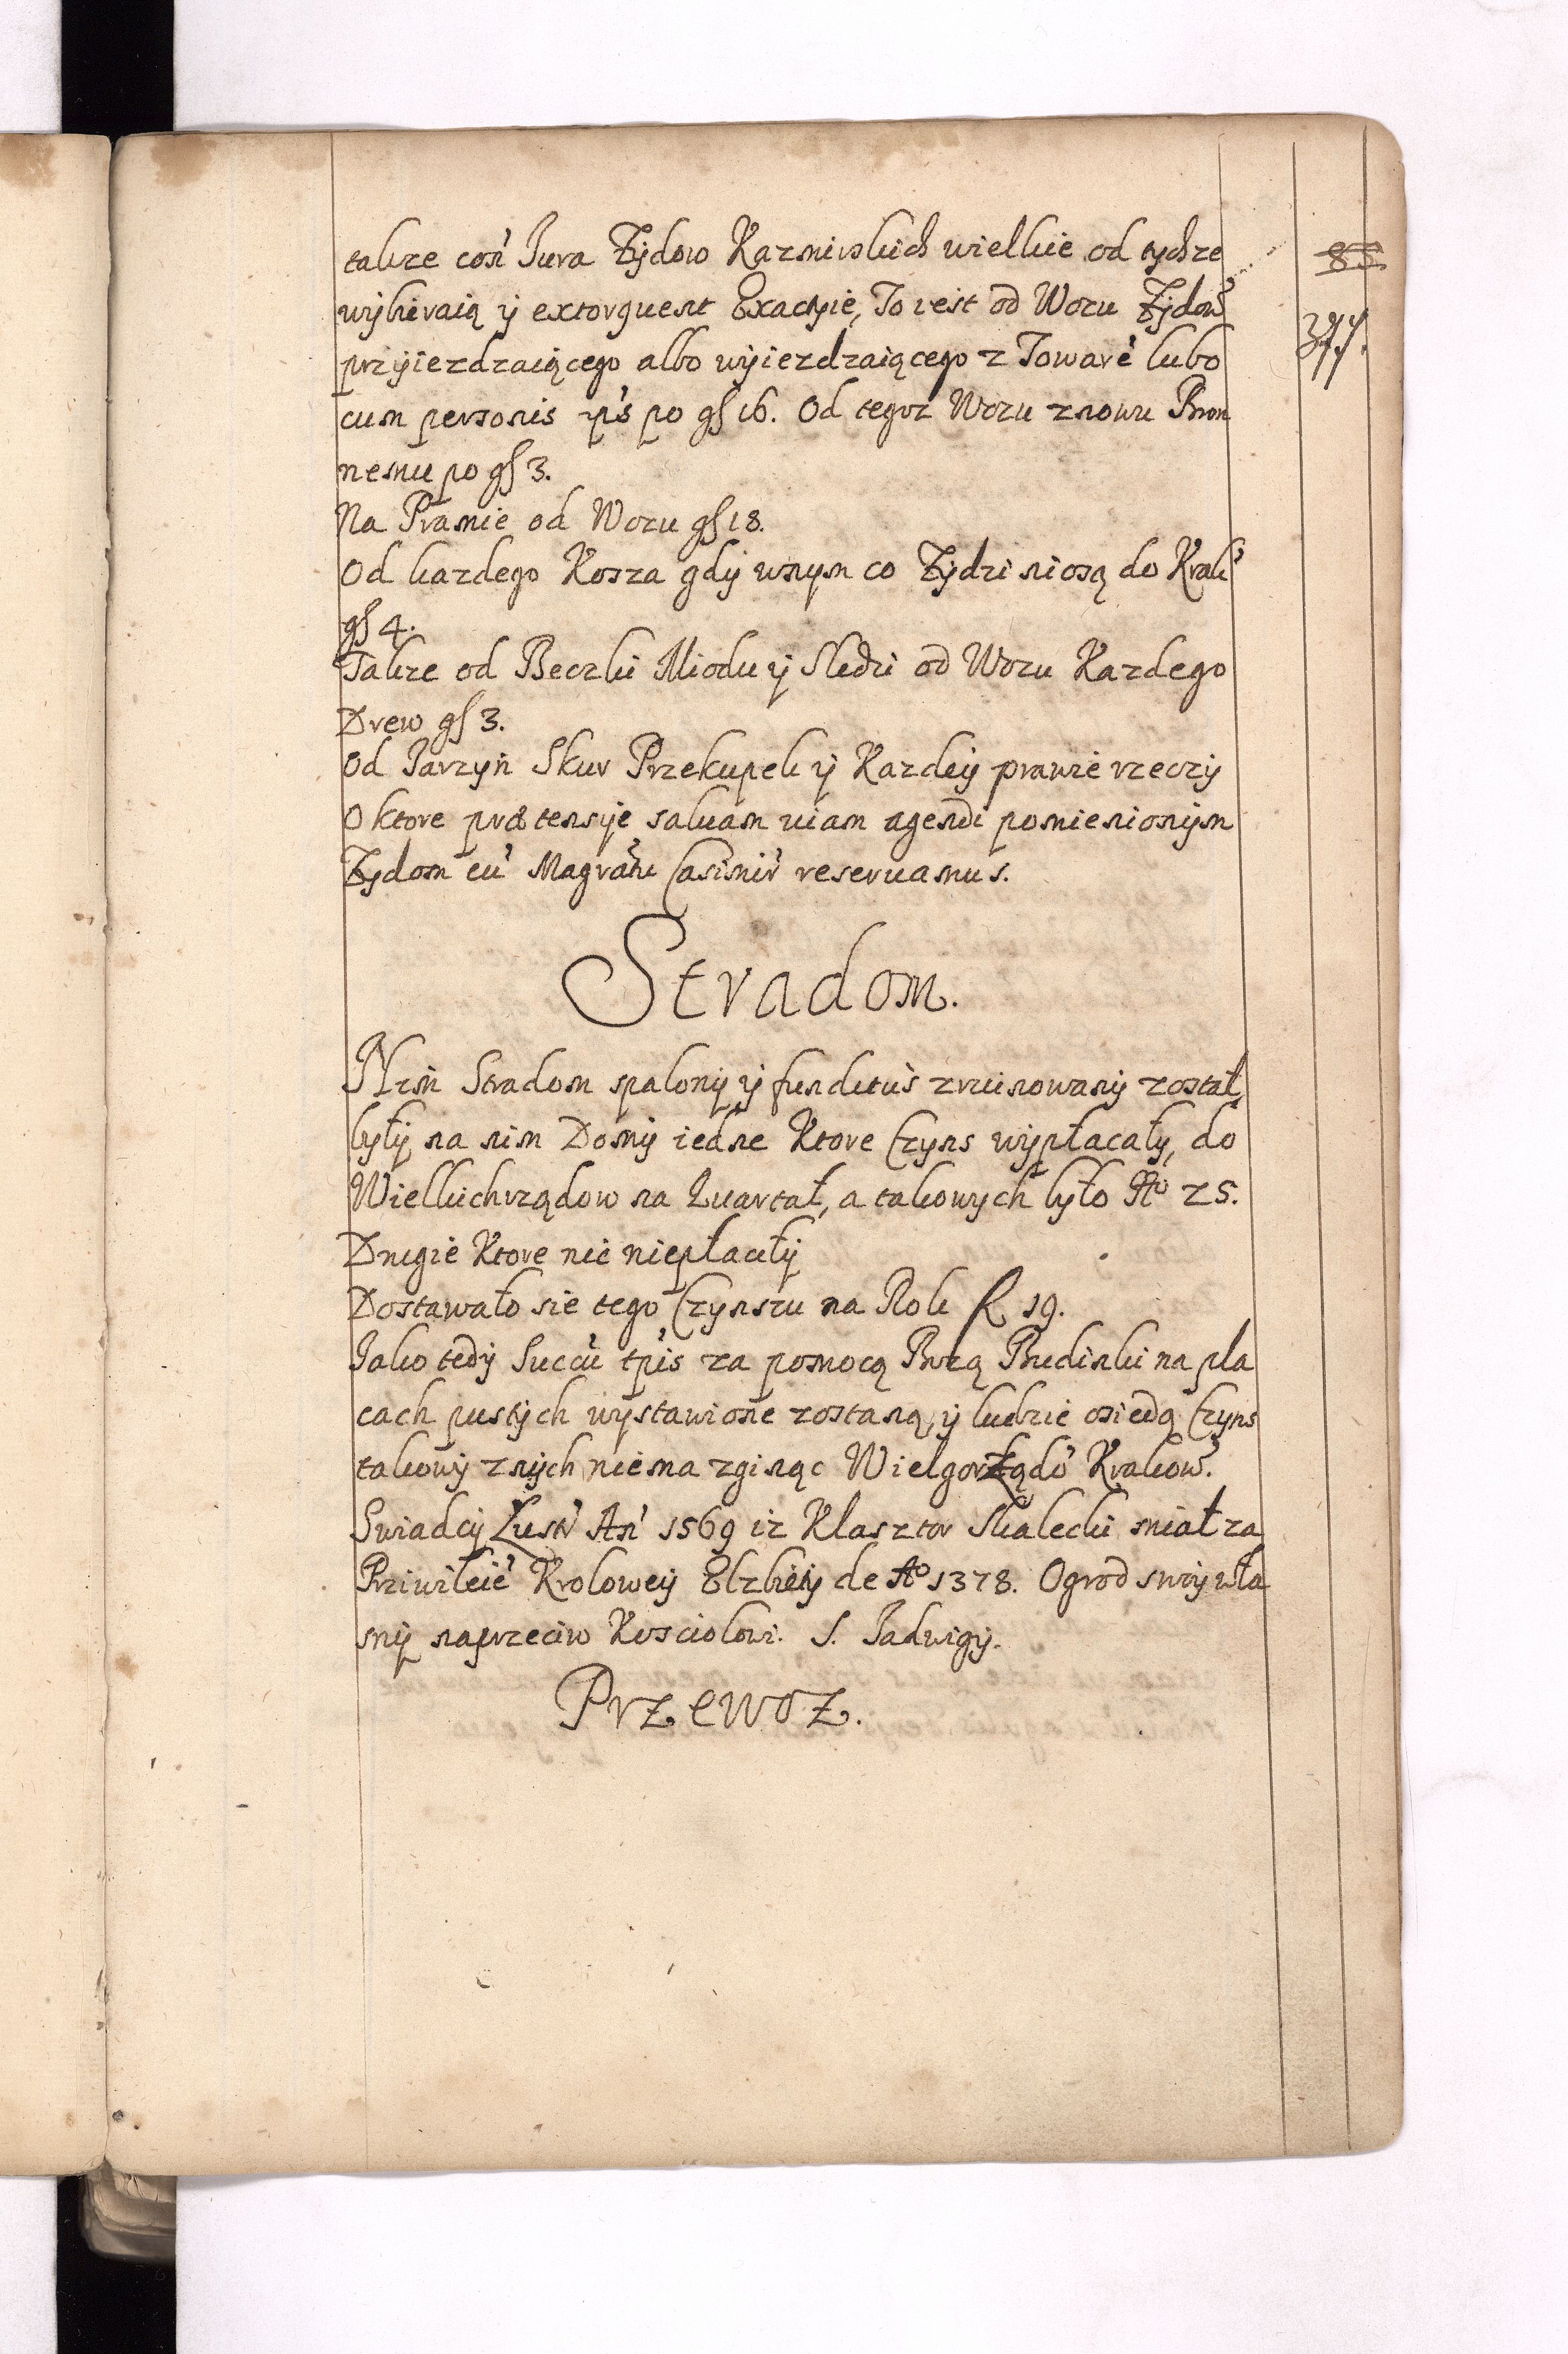 takze con' Jura Zydow Kazmirskich wielkie od tychze
wybieraią y extorquent Exactyie, To iest od Wozu Zydow'
przyiezdzaiącego albo wyiezdzaiącego z Towarē lubo
cum personis ip̄s po gſ 16. Od tegoz Wozu znowu Bron
nemu po gſ 3.
Na Pramie od Wozu gſ 18.
Od kazdego Kosza gdy wnym co Zydzi niosą do Krak'
gſ 4.
Takze od Beczki Miodu y Sledzi od Wozu Kazdego
Drew gſ 3.
Od Jarzyn Skur Przekupek y Kazdey prawie rzeczy
O ktore prætensye saluam uiam agendi pomienionym
Zydom cū Magratu Casimir' reseruamus.
Stradom.
Nizm Stradom spalony y funditus zruinowany zostal,
były na nim Domy iedne Ktore Czyns wypłacały, do
Wielkichrządow na Quartał, a takowych było No 25.
Drugie Ktore nic niepłaciły
Dostawało sie tego Czynszu na Rok f 19.
Jako tedy Succū tp̄is za pomocą Bozą Budinki na pla
cach pustych wystawione zostaną, y ludzie osiedą Czyns
takowy znych niema zginąc Wielgorządō Krakow'.
Swiadcy Lustr' An' 1569 iz Klasztor Skalecki miał za
Priwileiē Krolowey Elzbiety de Ao 1378. Ogrod swoy wła
sny naprzeciw Kosciolowi. S. Jadwigy.
Przewoz.
85
377.